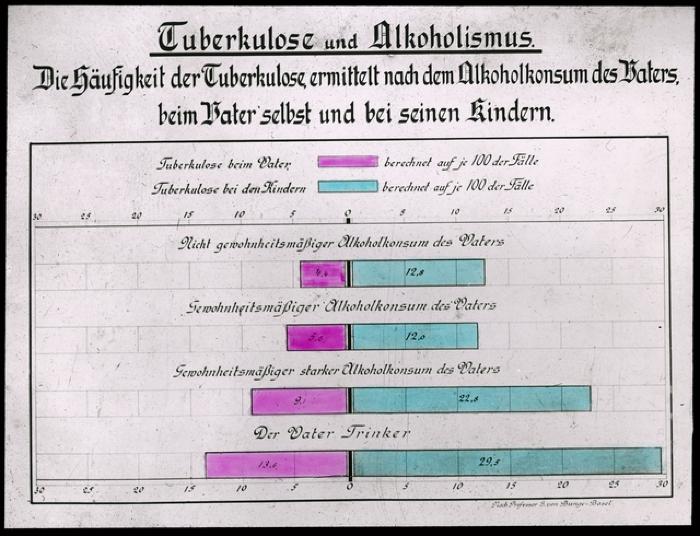 Tuberkulose und Alkoholismus.
Die Häufigkeit der Tuberkulose, ermittelt nach dem Alkoholkonsum des Vaters,
beim Vater selbst und bei seinen Kindern.
Tuberkulose beim Vater, berechnet auf je 100 der Fälle
Tuberkulose bei den Kindern berechnet auf je 100 der Fälle
30 25 20 15 10 5 0 5 10 15 20 25 30
Nicht gewohnheitsmäßiger Alkoholkonsum des Vaters
12,8
Gewohnheitsmäßiger Alkoholkonsum des Vaters
12,0
Gewohnheitsmäßiger starker Alkoholkonsum des Vaters
9,1 22,8
Der Vater Trinker
29,5
30 25 20 15 10 5 0 5 10 15 20 25 30
Nach Professor G. von Bunge-Basel.